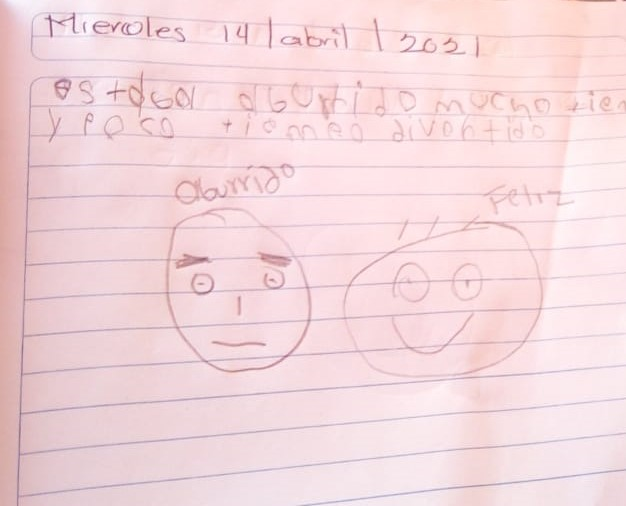 Miercoles 14/abril/2021
estdba aburrido mucho tiem
y poco tiempo divertido
aburrido
Feliz